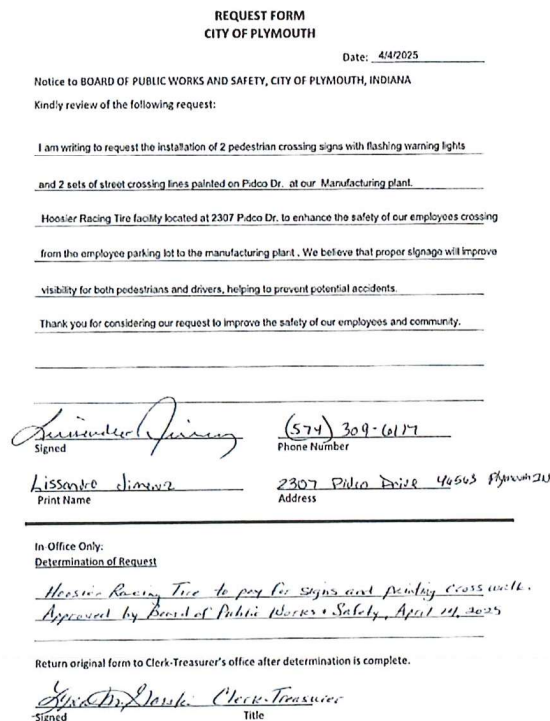 REQUEST FORM
CITY OF PLYMOUTH
Date: 4/4/2025
Notice to BOARD OF PUBLIC WORKS AND SAFETY, CITY OF PLYMOUTH, INDIANA
Kindly review of the following request:
I am writing to request the installation of 2 pedestrian crossing signs with flashing warning lights
and 2 sets of street crossing lines painted on Pidco Dr. at our Manufacturing plant.
Hoosier Racing Tire facility located at 2307 Pidco Dr. to enhance the safety of our employees crossing
from the employee parking lot to the manufacturing plant . We believe that proper signage will improve
visibility for both pedestrians and drivers, helping to prevent potential accidents.
Thank you for considering our request to improve the safety of our employees and community.
(574) 309-6117
Signed Phone Number
Lissandro 2307 Pidco Drive 46563 Plymouth IN
Print Name Address
In-Office Only:
Determination of Request
Hoosier Racing Tire to pay for signs and painting crosswalk.
Approved by Board of Public Works & Safety, April 14, 2025
Return original form to Clerk-Treasurer's office after determination is complete.
Clerk-Treasurer
Signed Title